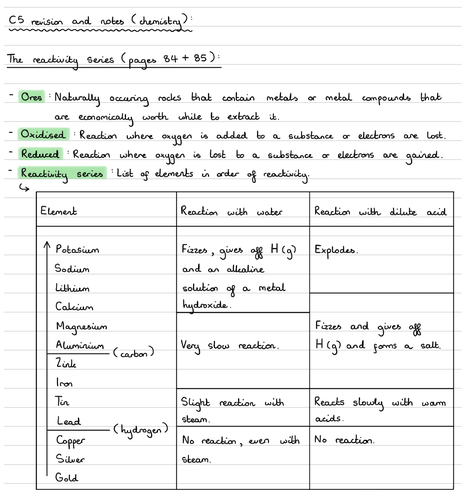 C5 revision and notes (chemistry):
The reactivity series (pages 84 + 85):
- Ores : Naturally occuring rocks that contain metals or metal compounds that
are economically worth while to extract it.
- Oxidised : Reaction where oxygen is added to a substance or electrons are lost.
- Reduced : Reaction where oxygen is lost to a substance or electrons are gained.
- Reactivity series : List of elements in order of reactivity.
Element
Reaction with water
Reaction with dilute acid
Potasium
Sodium
Lithium
Calcium
Magnesium
Aluminium
(carbon)
Zink
Iron
Tin
Lead
(hydrogen)
Copper
Silver
Gold
Fizzes, gives off H (g)
and an alkaline
solution of a metal
hydroxide.
Very slow reaction.
Slight reaction with
steam.
No reaction, even with
steam.
Explodes.
Fizzes and gives off
H (g) and forms a salt.
Reacts slowly with warm
acids.
No reaction.